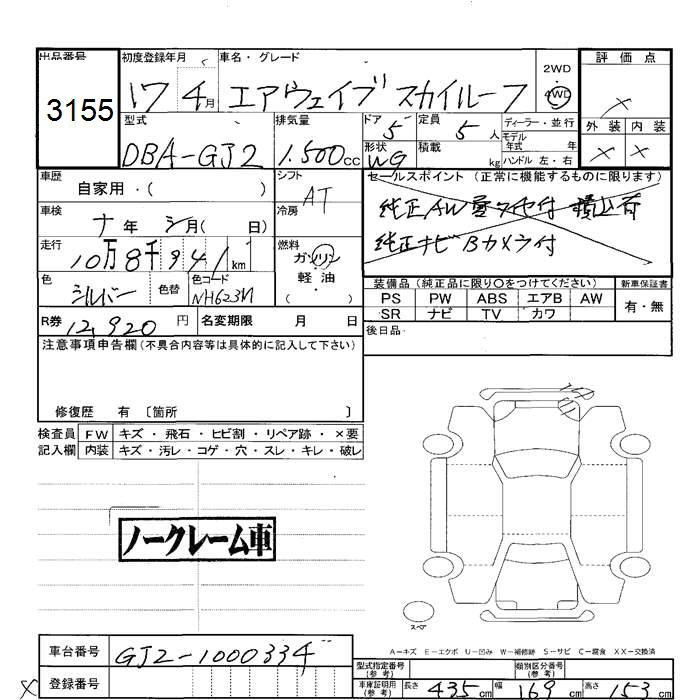 出品番号 初度登録年月 車名・グレード 2WD 評価点
3155 17 4月 エアウェイブ スカイルーフ 4WD ×
型式 排気量 ドア 5 定員 5人 ディーラー・並行 外装 内装
DBA-GJ2 1.500cc 形状 WG 積載 kg モデル年式 年 × ×
ハンドル 左・右
車歴 シフト セールスポイント (正常に機能するものに限ります)
自家用・( ) AT
車検 冷房 純正AW
ナ年 シ月( 日) 純正ナビ Bカメラ付
走行 燃料
10万8千941km ガソリン
軽油
( )
色 色替 色コード 装備品 (純正品に限り○をつけてください) 新車保証書
シルバー NH623M PS PW ABS エアB AW 有・無
R券 12,920円 名変期限 月 日 SR ナビ TV カワ
注意事項申告欄(不具合内容等は具体的に記入して下さい) 後日品
修復歴 有 〔箇所 〕
検査員 FW キズ・飛石・ヒビ割・リペア跡・×要
記入欄 内装 キズ・汚レ・コゲ・穴・スレ・キレ・破レ
ノークレーム車
スペア
A-キズ E-エクボ U-凹み W-補修跡 S-サビ C-腐食 XX-交換済
車台番号 GJ2-1000334
型式指定番号(参考) 類別区分番号(参考)
登録番号 車庫証明用(参考) 長さ 435cm 幅 169cm 高さ 153cm
×